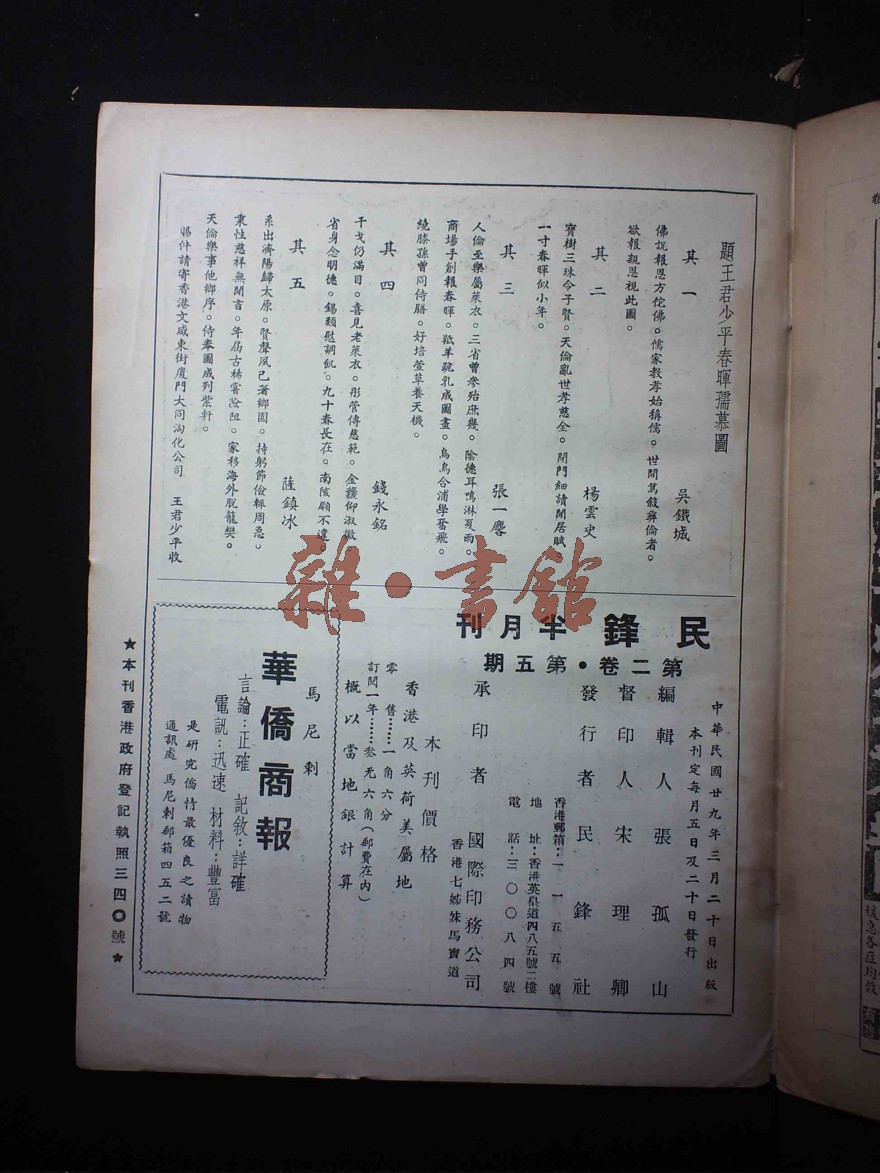 題王君少平春暉孺慕圖
其一　吳鐵城
佛說報恩方佗佛。儒家教孝始稱儒。世間篤敘彝倫者。
欲報親恩視此圖。
其二　楊雲史
寶樹三珠令子賢。天倫亂世孝慈全。閉門細讀閒居賦。
一寸春暉似小年。
其三　張一麐
人倫至樂屬萊衣。三省曾參殆庶幾。陰德耳鳴淋夏雨。
商場手創報春暉。羝羊乳成圖畫。烏烏合浦學奮飛。
繞膝孫曾同侍膳。好培萱草養天機。
其四　錢永銘
干戈仍滿目。喜見老萊衣。彤管傳慈範。金護仰淑徽。
省身念明德。錫類慰調飢。九十春長在。南陔願不違。
其五　薩鎮冰
系出濟陽歸太原。賢聲夙已著鄉園。持躬節儉輙周急。
秉性慈祥無閒言。年屆古稀嘗險阻。家移海外脫籠樊。
天倫樂事他鄉序。侍奉圖成列紫軒。
賜件請寄香港文咸東街廈門大同淘化公司　王君少平收
民鋒半月刊
第二卷・第五期
中華民國廿九年三月二十日出版
本刊定每月五日及二十日發行
編輯人張孤山
督印人宋理卿
發行者民鋒社
香港郵箱：一一五五號
地址：香港英皇道四八五號二樓
電話：三〇〇八四號
承印者國際印務公司
香港七姊妹馬寶道
本刊價格
香港及英荷美屬地
零售……一角六分
訂閱一年……叁元六角（郵費在內）
概以當地銀計算
馬尼剌
華僑商報
言論：正確　記敘：詳確
電訊：迅速　材料：豐富
是研究僑情最優良之讀物
通訊處　馬尼剌郵箱四五二號
★本刊香港政府登記執照三四〇號★
雜・書館
救急各症均效